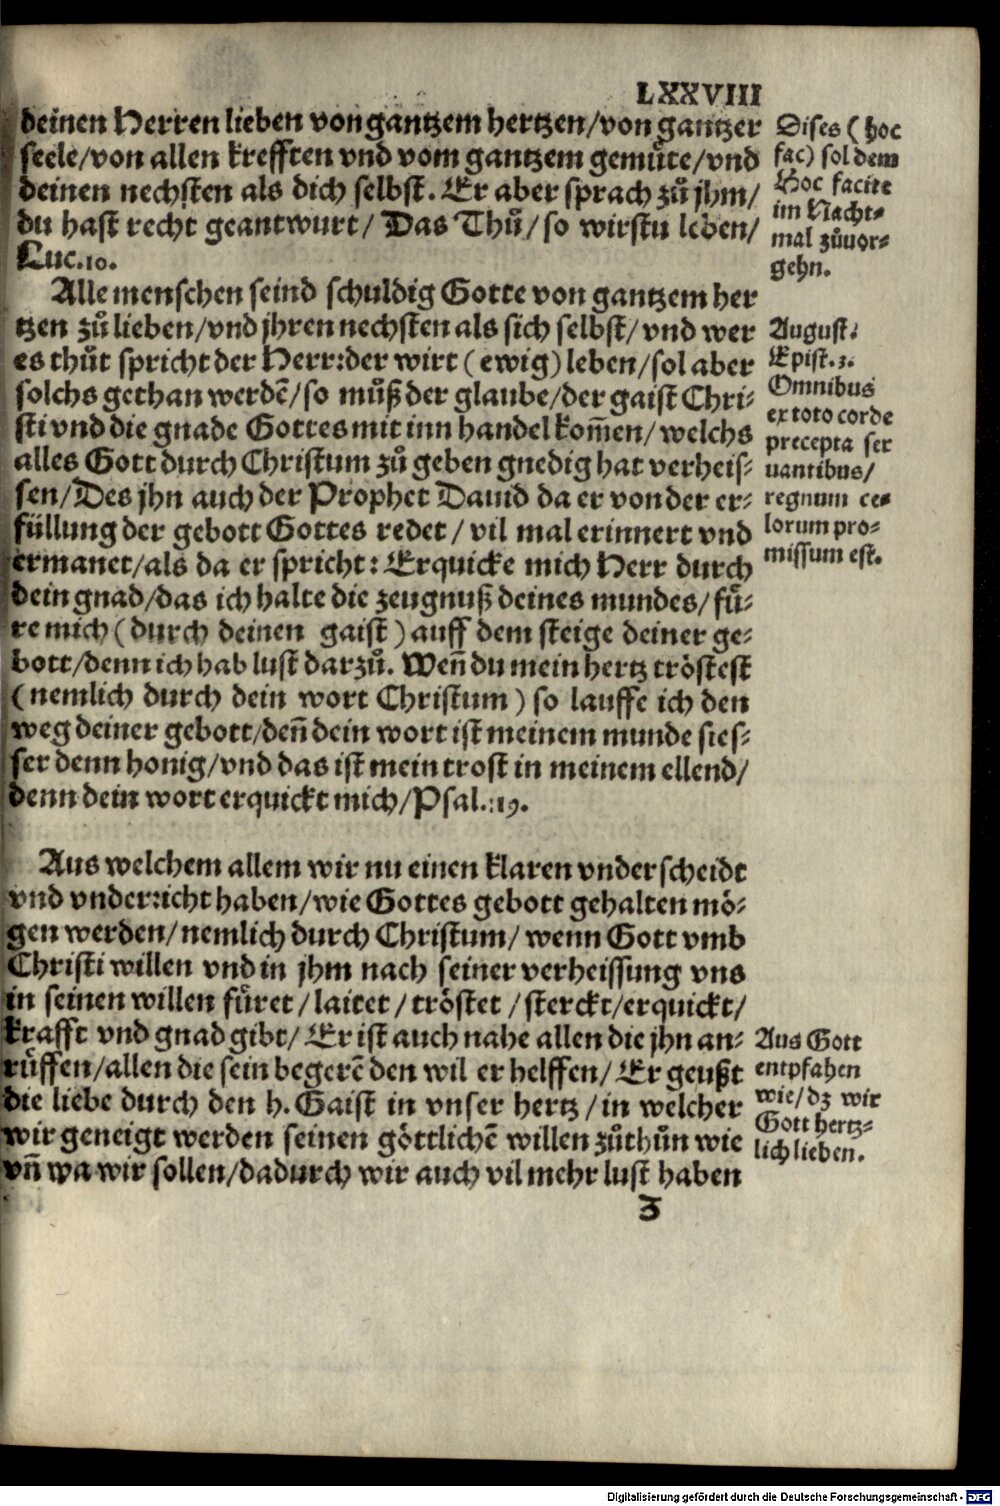 LXXVIII
deinen Herren lieben von gantzem hertzen/von gantzer
seele/von allen krefften vnd vom gantzem gemuͤte/vnd
deinen nechsten als dich selbst. Er aber sprach zuͦ jhm/
du hast recht geantwurt/ Das Thuͦ/so wirstu leben/
Luc.10.
Alle menschen seind schuldig Gotte von gantzem her
tzen zuͦ lieben/vnd jhren nechsten als sich selbst/vnd wer
es thuͦt spricht der Herr:der wirt (ewig) leben/sol aber
solchs gethan werdẽ/so muͦß der glaube/der gaist Chri⸗
sti vnd die gnade Gottes mit inn handel kom̃en/welchs
alles Gott durch Christum zuͦ geben gnedig hat verheis⸗
sen/Des jhn auch der Prophet Dauid da er von der er⸗
füllung der gebott Gottes redet/vil mal erinnert vnd
ermanet/als da er spricht: Erquicke mich Herr durch
dein gnad/das ich halte die zeugnuß deines mundes/fuͤ⸗
re mich (durch deinen gaist) auff dem steige deiner ge⸗
bott/denn ich hab lust darzuͦ. Weñ du mein hertz tröstest
(nemlich durch dein wort Christum) so lauffe ich den
weg deiner gebott/deñ dein wort ist meinem munde sies⸗
ser denn honig/vnd das ist mein trost in meinem ellend/
denn dein wort erquickt mich/Psal.119.
Aus welchem allem wir nu einen klaren vnderscheidt
vnd vnderricht haben/wie Gottes gebott gehalten mö⸗
gen werden/nemlich durch Christum/wenn Gott vmb
Christi willen vnd in jhm nach seiner verheissung vns
in seinen willen fuͤret/laitet/tröstet/sterckt/erquickt/
krafft vnd gnad gibt/ Er ist auch nahe allen die jhn an⸗
ruͤffen/allen die sein begerẽ den wil er helffen/ Er geußt
die liebe durch den h. Gaist in vnser hertz/in welcher
wir geneigt werden seinen göttlichẽ willen zuͦthuͦn wie
vñ wa wir sollen/dadurch wir auch vil mehr lust haben
Z
Dises (hoc
fac) sol dem
Hoc facite
im Nacht⸗
mal zuͦuor⸗
gehn.
August.
Epist.3.
Omnibus
ex toto corde
precepta ser
uantibus/
regnum ce⸗
lorum pro⸗
missum est.
Aus Gott
entpfahen
wie/dz wir
Gott hertz⸗
lich lieben.
Digitalisierung gefördert durch die Deutsche Forschungsgemeinschaft - DFG